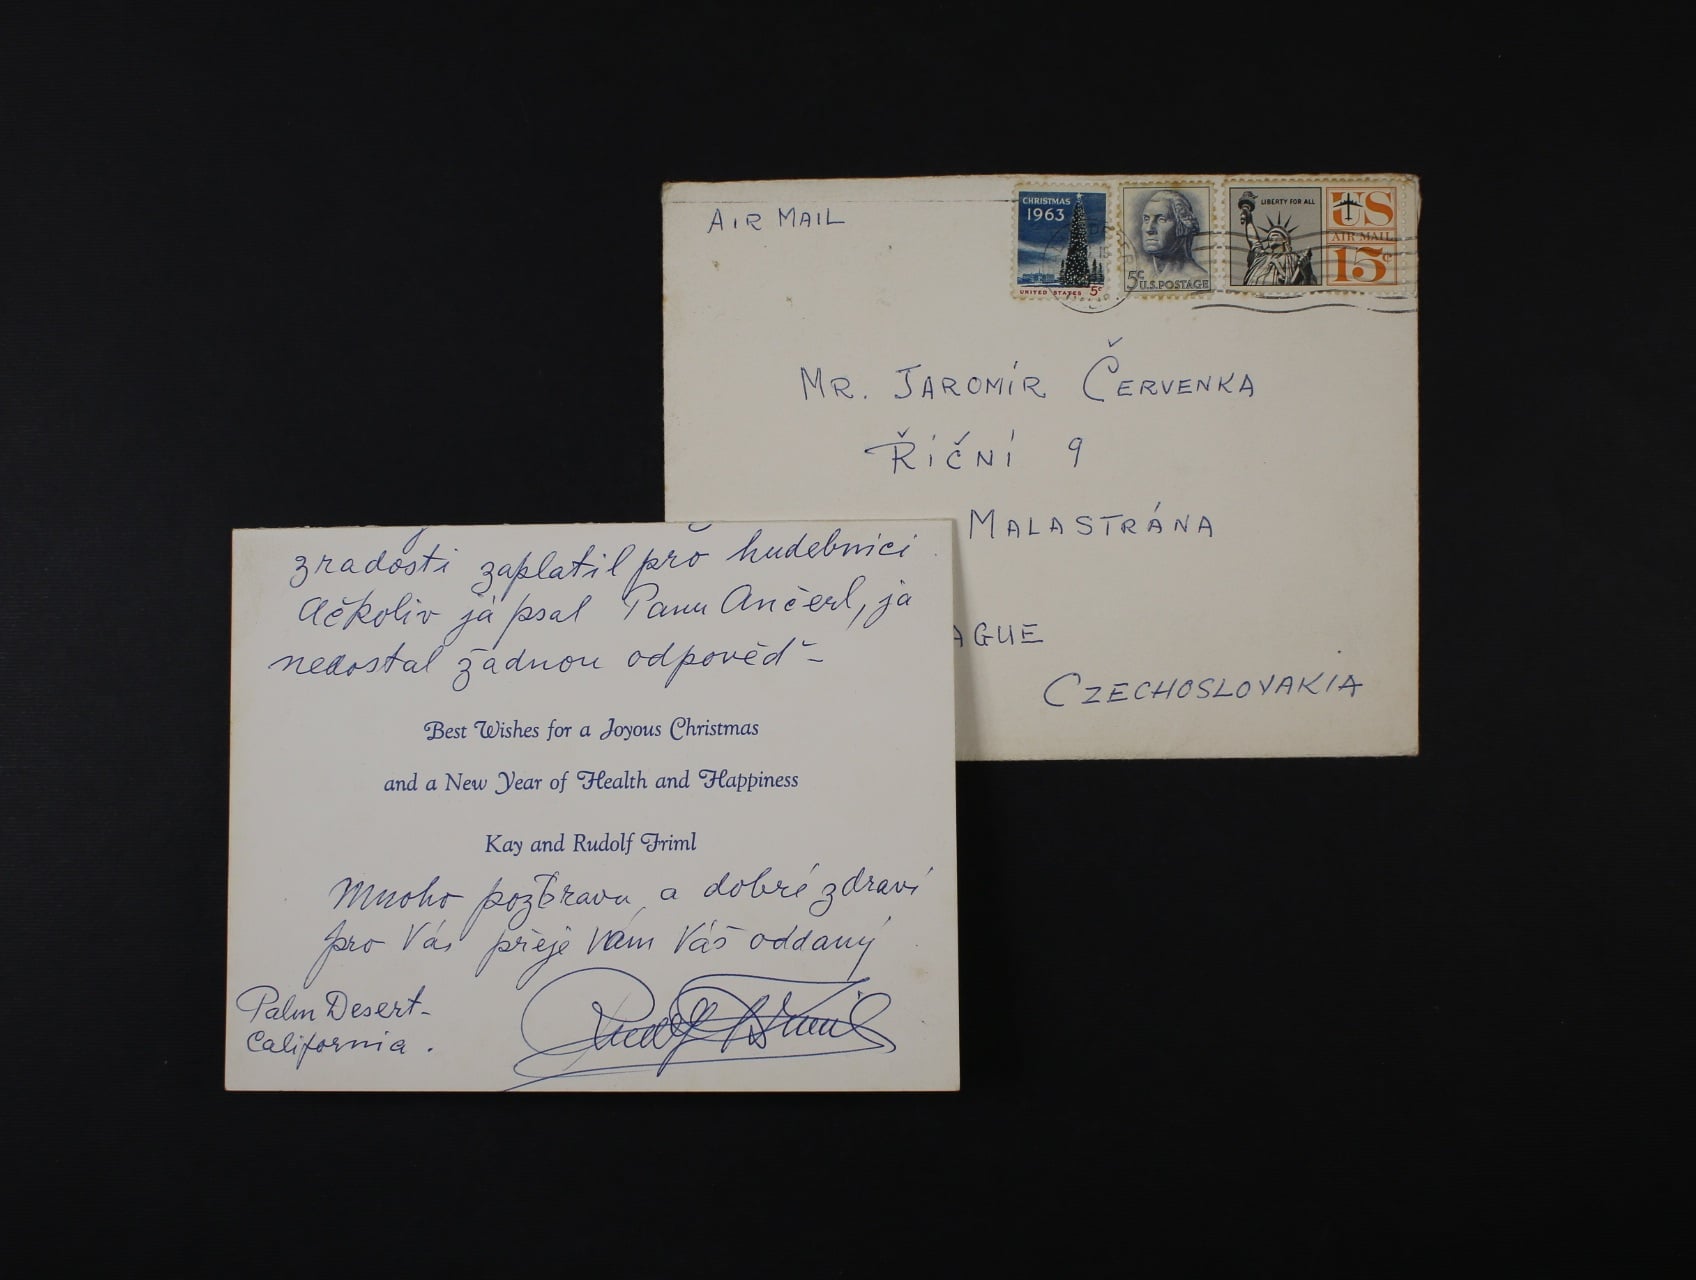 AIR MAIL
CHRISTMAS
1963
UNITED STATES 5c
5c
U.S. POSTAGE
LIBERTY FOR ALL
US
AIR MAIL
15c
MR. JAROMÍR ČERVENKA
ŘÍČNÍ 9
MALASTRÁNA
AGUE
CZECHOSLOVAKIA
zradosti zaplatil pro hudebníci
Ačkoliv já psal Panu Ančerl, já
nedostal žádnou odpověď -
Best Wishes for a Joyous Christmas
and a New Year of Health and Happiness
Kay and Rudolf Friml
Mnoho pozdravu a dobré zdraví
pro Vás přeje Vám Váš oddaný
Palm Desert -
California .
Rudolf Friml